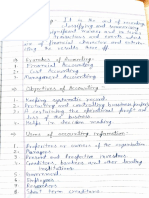 It is the art of recording
classifying and summarizing
significant manner and in terms
transactions and events which
of financial character and
the results there off.
Branches of Accounting:-
1 Financial Accounting
2 Cost Accounting
3 Management Accounting
Objectives of Accounting:-
Keeping systematic record
Protecting and controlling business properties
Ascertaining the operational profit and
loss of the business
Helps in decision making
Users of accounting information:-
Proprietors or owners of the organisation
Managers
Present and Prospective investors
Creditors, bankers and other lending
institution
Government
Employees
Researchers
Short term creditors